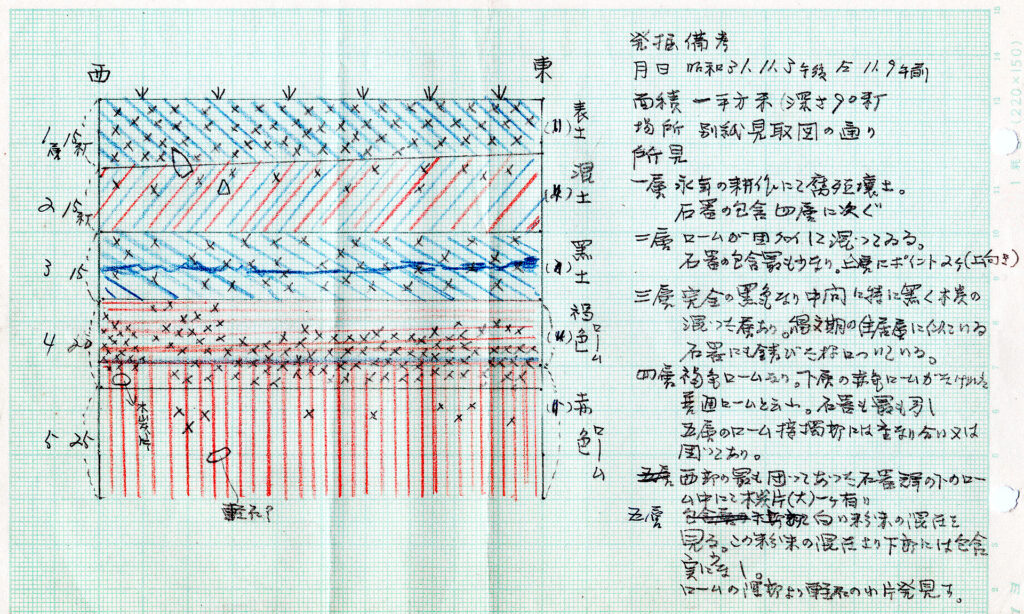 西
東
1層 15糎
2 15糎
3 15
4 20
5 25
表土
混土
黒土
褐色ローム
赤色ローム
木炭片
軽石?
発掘備考
月日 昭和31.11.5午後 11.9午前
面積 一平方米 深さ90糎
場所 別紙見取図の通り
所見
一層 永年の耕作にて腐植壌土。
石器の包含四層に次ぐ
二層 ロームが 混つてゐる。
石器の包含最も少なり。上層にポイント2ケ(上向き)
三層 完全の黒色なり中間に特に黒く木炭の
混つた層あり。縄文期の住居産に似ている
石器にも錆びた様 ついている。
四層 褐色ロームなり。下層の赤色ローム
普通ロームと云わ。石器も最も多し
五層のローム接触部には重なり合い又は
固つてあり。
西部の最も固つてあつた石器 の下のロー
ム中にて木炭片(大)一ケ有り
五層 白い粉末の混在を
見る。この粉末の混在より下部には包含
実になし。
ロームの深部より軽石の小片発見す。
1 死 (220×150)